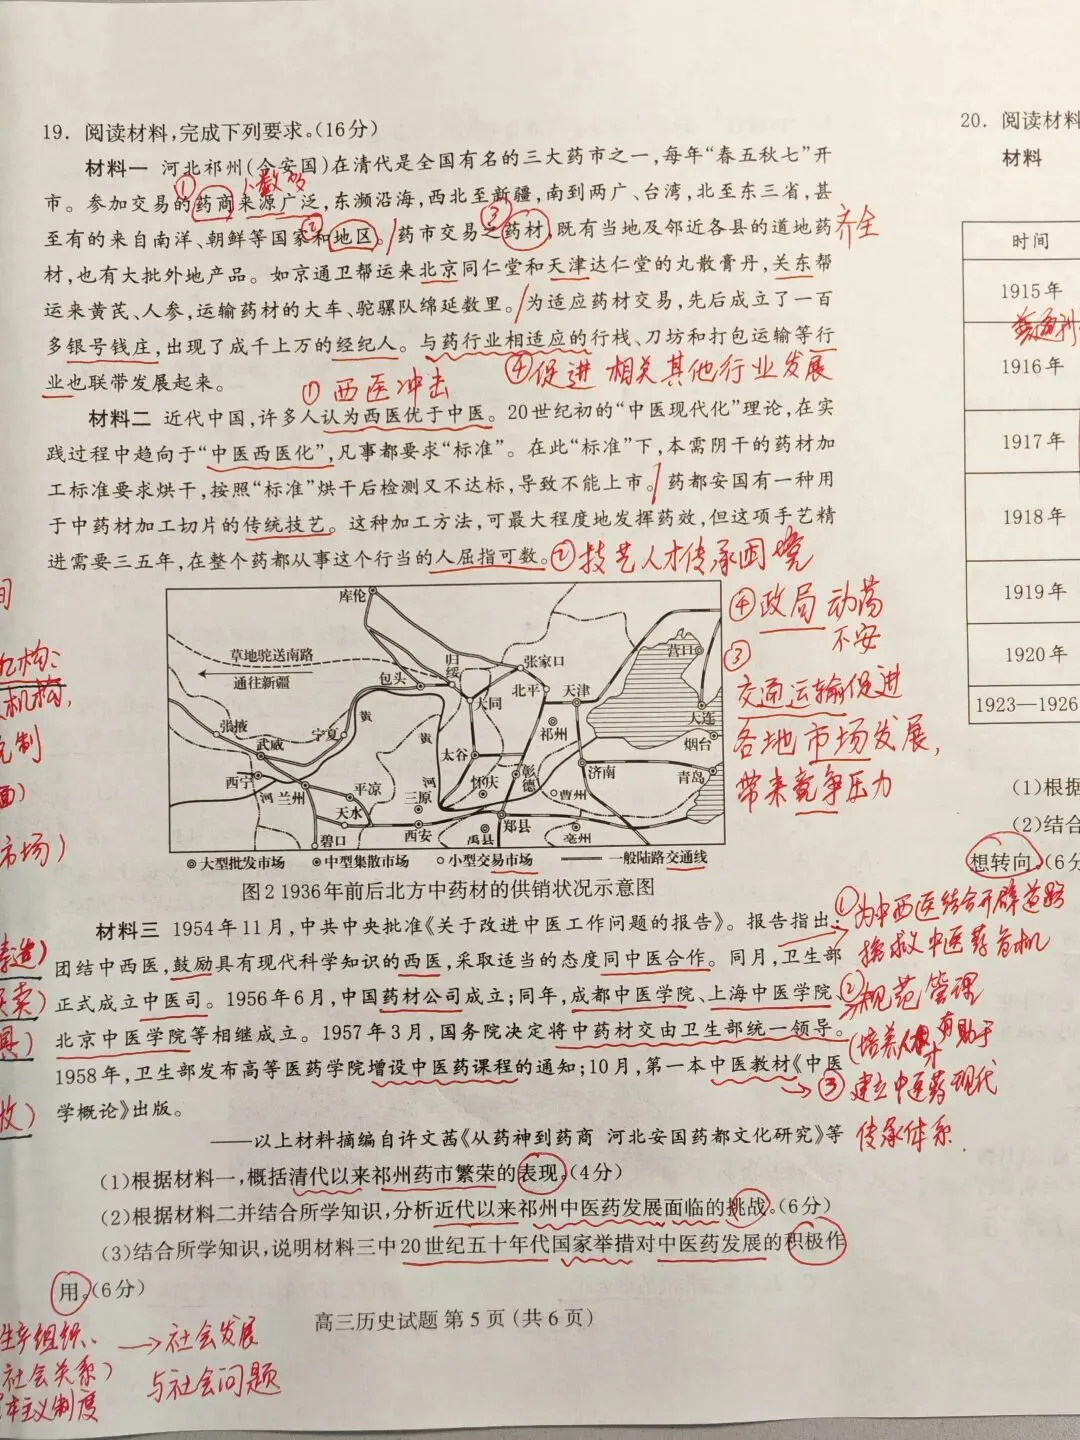 19. 阅读材料,完成下列要求。(16分)
材料一 河北祁州(今安国)在清代是全国有名的三大药市之一,每年“春五秋七”开
市。参加交易的药商来源广泛,东濒沿海,西北至新疆,南到两广、台湾,北至东三省,甚
至有的来自南洋、朝鲜等国家和地区。药市交易之药材,既有当地及邻近各县的道地药
材,也有大批外地产品。如京通卫帮运来北京同仁堂和天津达仁堂的丸散膏丹,关东帮
运来黄芪、人参,运输药材的大车、驼骡队绵延数里。为适应药材交易,先后成立了一百
多银号钱庄,出现了成千上万的经纪人。与药行业相适应的行栈、刀坊和打包运输等行
业也联带发展起来。
① ② ③
人数多
齐全
④促进 相关其他行业发展
①西医冲击
材料二 近代中国,许多人认为西医优于中医。20世纪初的“中医现代化”理论,在实
践过程中趋向于“中医西医化”,凡事都要求“标准”。在此“标准”下,本需阴干的药材加
工标准要求烘干,按照“标准”烘干后检测又不达标,导致不能上市。药都安国有一种用
于中药材加工切片的传统技艺。这种加工方法,可最大程度地发挥药效,但这项手艺精
进需要三五年,在整个药都从事这个行当的人屈指可数。
②技艺人才传承困境
④政局动荡
不安
③
交通运输促进
各地市场发展,
带来竞争压力
库伦
草地驼送南路
通往新疆
归绥
包头
张家口
北平
天津
营口
大连
烟台
大同
张掖
武威
宁夏
黄
黄
河
祁州
太谷
西宁
河
兰州
平凉
天水
三原
怀庆
彰德
济南
青岛
曹州
碧口
西安
禹县
郑县
亳州
◎大型批发市场 ⊙中型集散市场 ○小型交易市场 —— 一般陆路交通线
图2 1936年前后北方中药材的供销状况示意图
材料三 1954年11月,中共中央批准《关于改进中医工作问题的报告》。报告指出:
团结中西医,鼓励具有现代科学知识的西医,采取适当的态度同中医合作。同月,卫生部
正式成立中医司。1956年6月,中国药材公司成立;同年,成都中医学院、上海中医学院、
北京中医学院等相继成立。1957年3月,国务院决定将中药材交由卫生部统一领导。
1958年,卫生部发布高等医药学院增设中医药课程的通知;10月,第一本中医教材《中医
学概论》出版。
——以上材料摘编自许文茜《从药神到药商 河北安国药都文化研究》等
①为中西医结合开辟道路
挽救中医药危机
②规范管理
(培养人才 有助于
③建立中医药现代
传承体系.
(1)根据材料一,概括清代以来祁州药市繁荣的表现。(4分)
(2)根据材料二并结合所学知识,分析近代以来祁州中医药发展面临的挑战。(6分)
(3)结合所学知识,说明材料三中20世纪五十年代国家举措对中医药发展的积极作
用。(6分)
高三历史试题 第5页(共6页)
间
机构:
机构,
制
面)
市场)
造)
卖)
具)
收)
生产组织、
社会关系)
本主义制度
→社会发展
与社会问题
20. 阅读材料
材料
时间
1915年
1916年
1917年
1918年
1919年
1920年
1923—1926
(1)根据
(2)结合
想转向。(6分